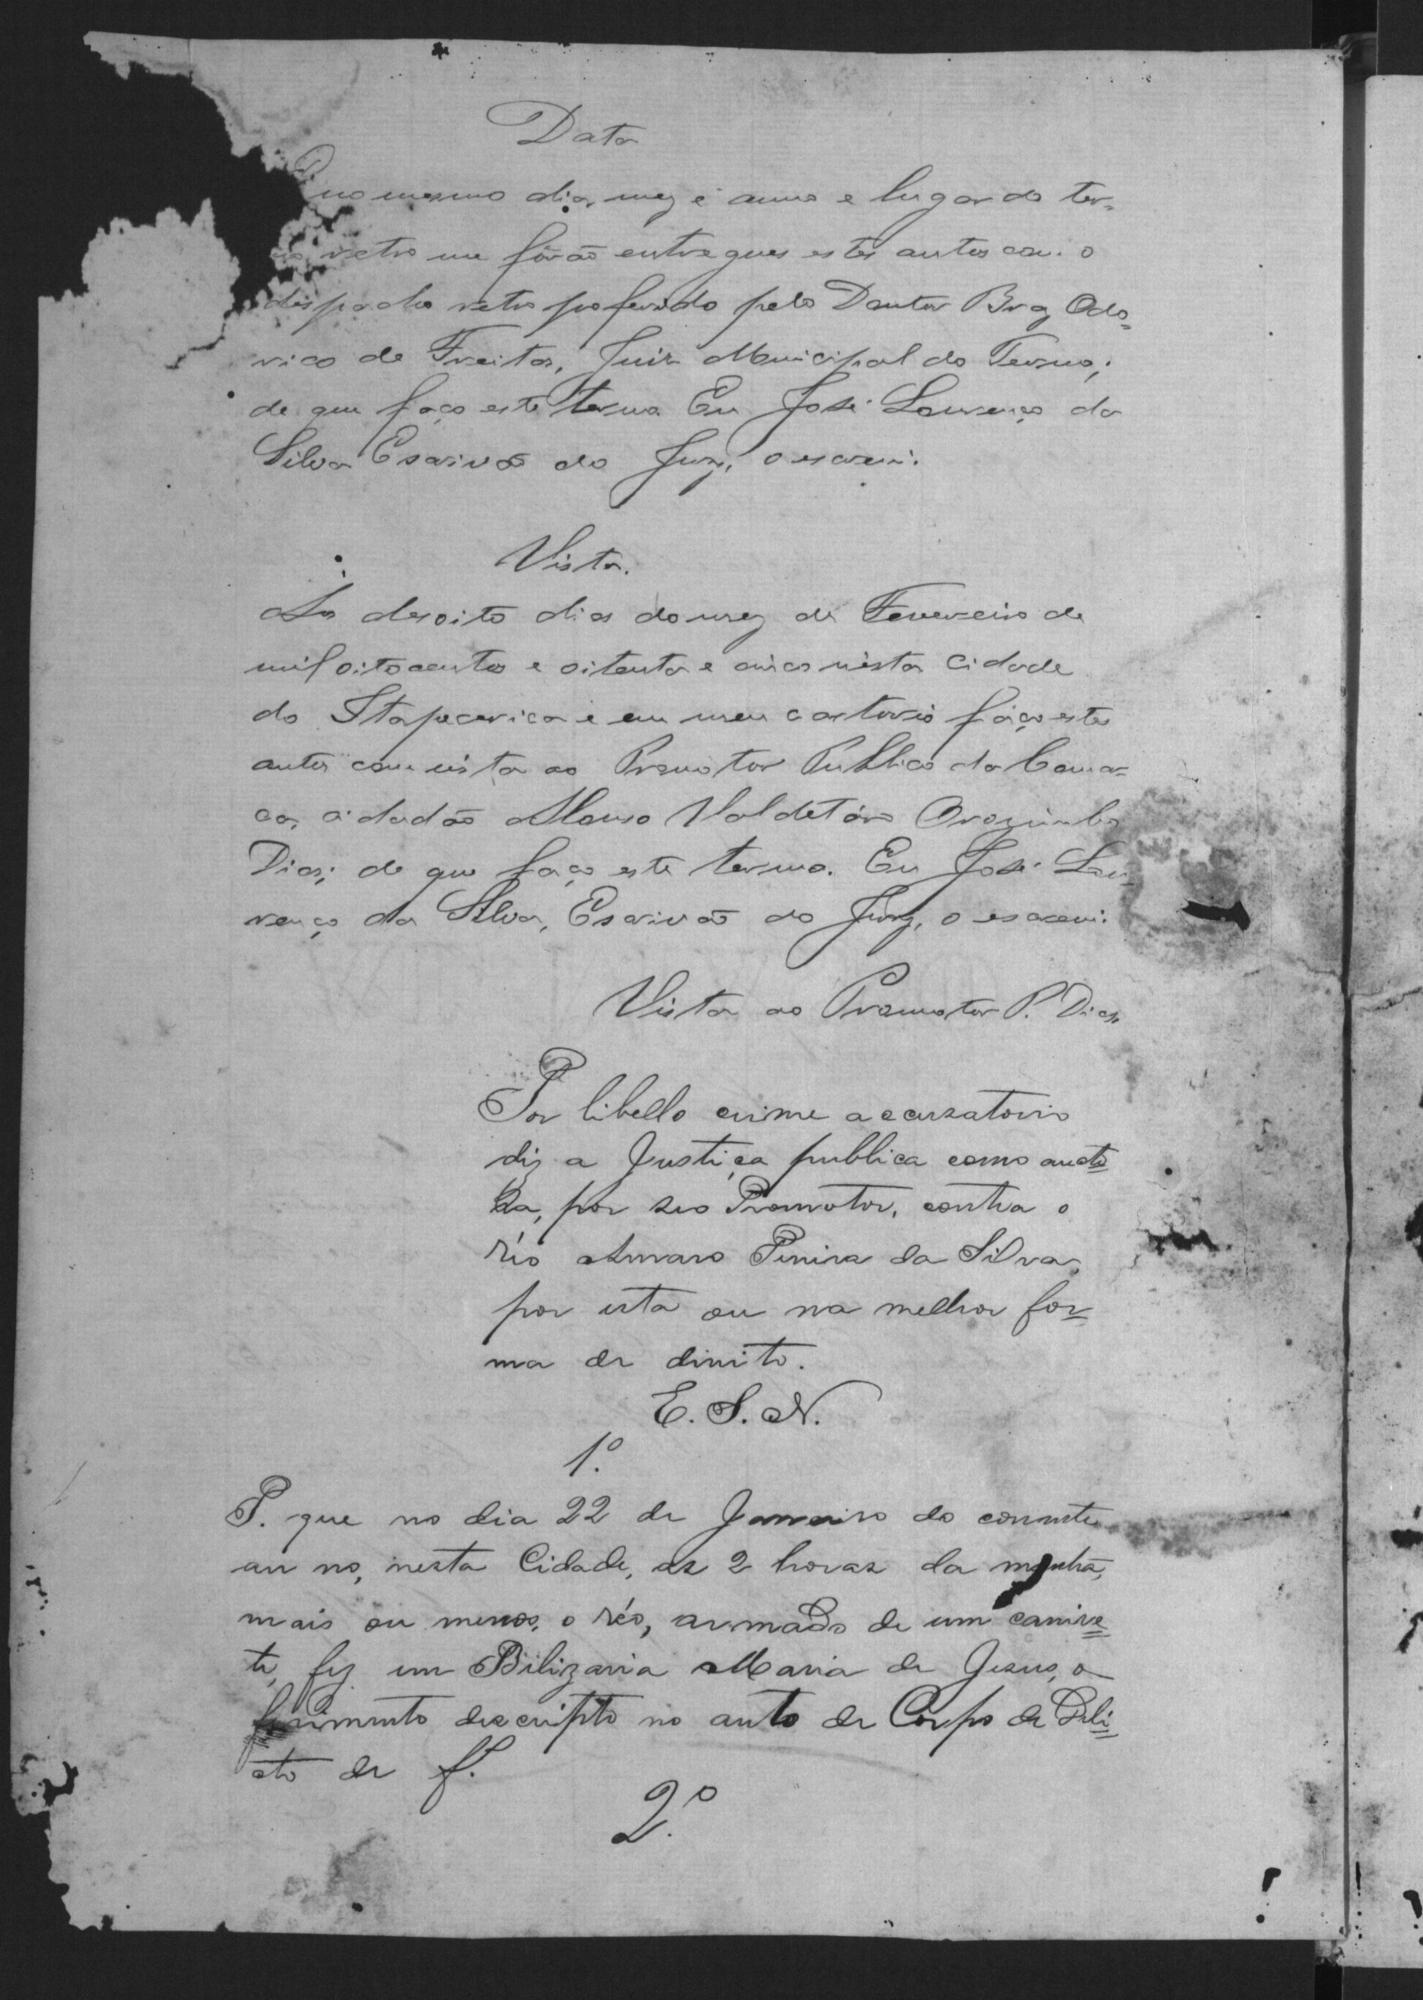 Data
no mesmo dia, mez e anno e lugar do ter-
mo retro me forão entregues estes autos com o
despacho retro proferido pelo Doutor Braz Odo-
rico de Freitas, Juiz Municipal do Termo;
de que faço este termo. Eu José Lourenço da
Silva Escrivão do Jury, o escrevi.
Vista.
Aos desoito dias do mez de Fevereiro de
mil oitocentos e oitenta e cinco nesta cidade
do Itapecerica e em meu cartorio faço estes
autos com vista ao Promotor Publico da Comar-
ca, cidadão Valdetáro
Dias; de que faço este termo. Eu José Lou-
renço da Silva, Escrivão do Jury, o escrevi.
Vista ao Promotor P. Dias.
Por libello crime accuzatorio
diz a Justiça publica como aucto-
ra, por seo Promotor, contra o
réo Amaro Pereira da Silva,
por esta ou na melhor for-
ma de direito.
E. S. N.
1º.
P. que no dia 22 de Janeiro do corrente
anno, nesta Cidade, as 2 horas da manhã,
mais ou menos, o réo, armado de um canive-
te, fez em Bilizaria Maria de Jesus, o
ferimento descripto no auto de Corpo de Deli-
cto de f.
2º.